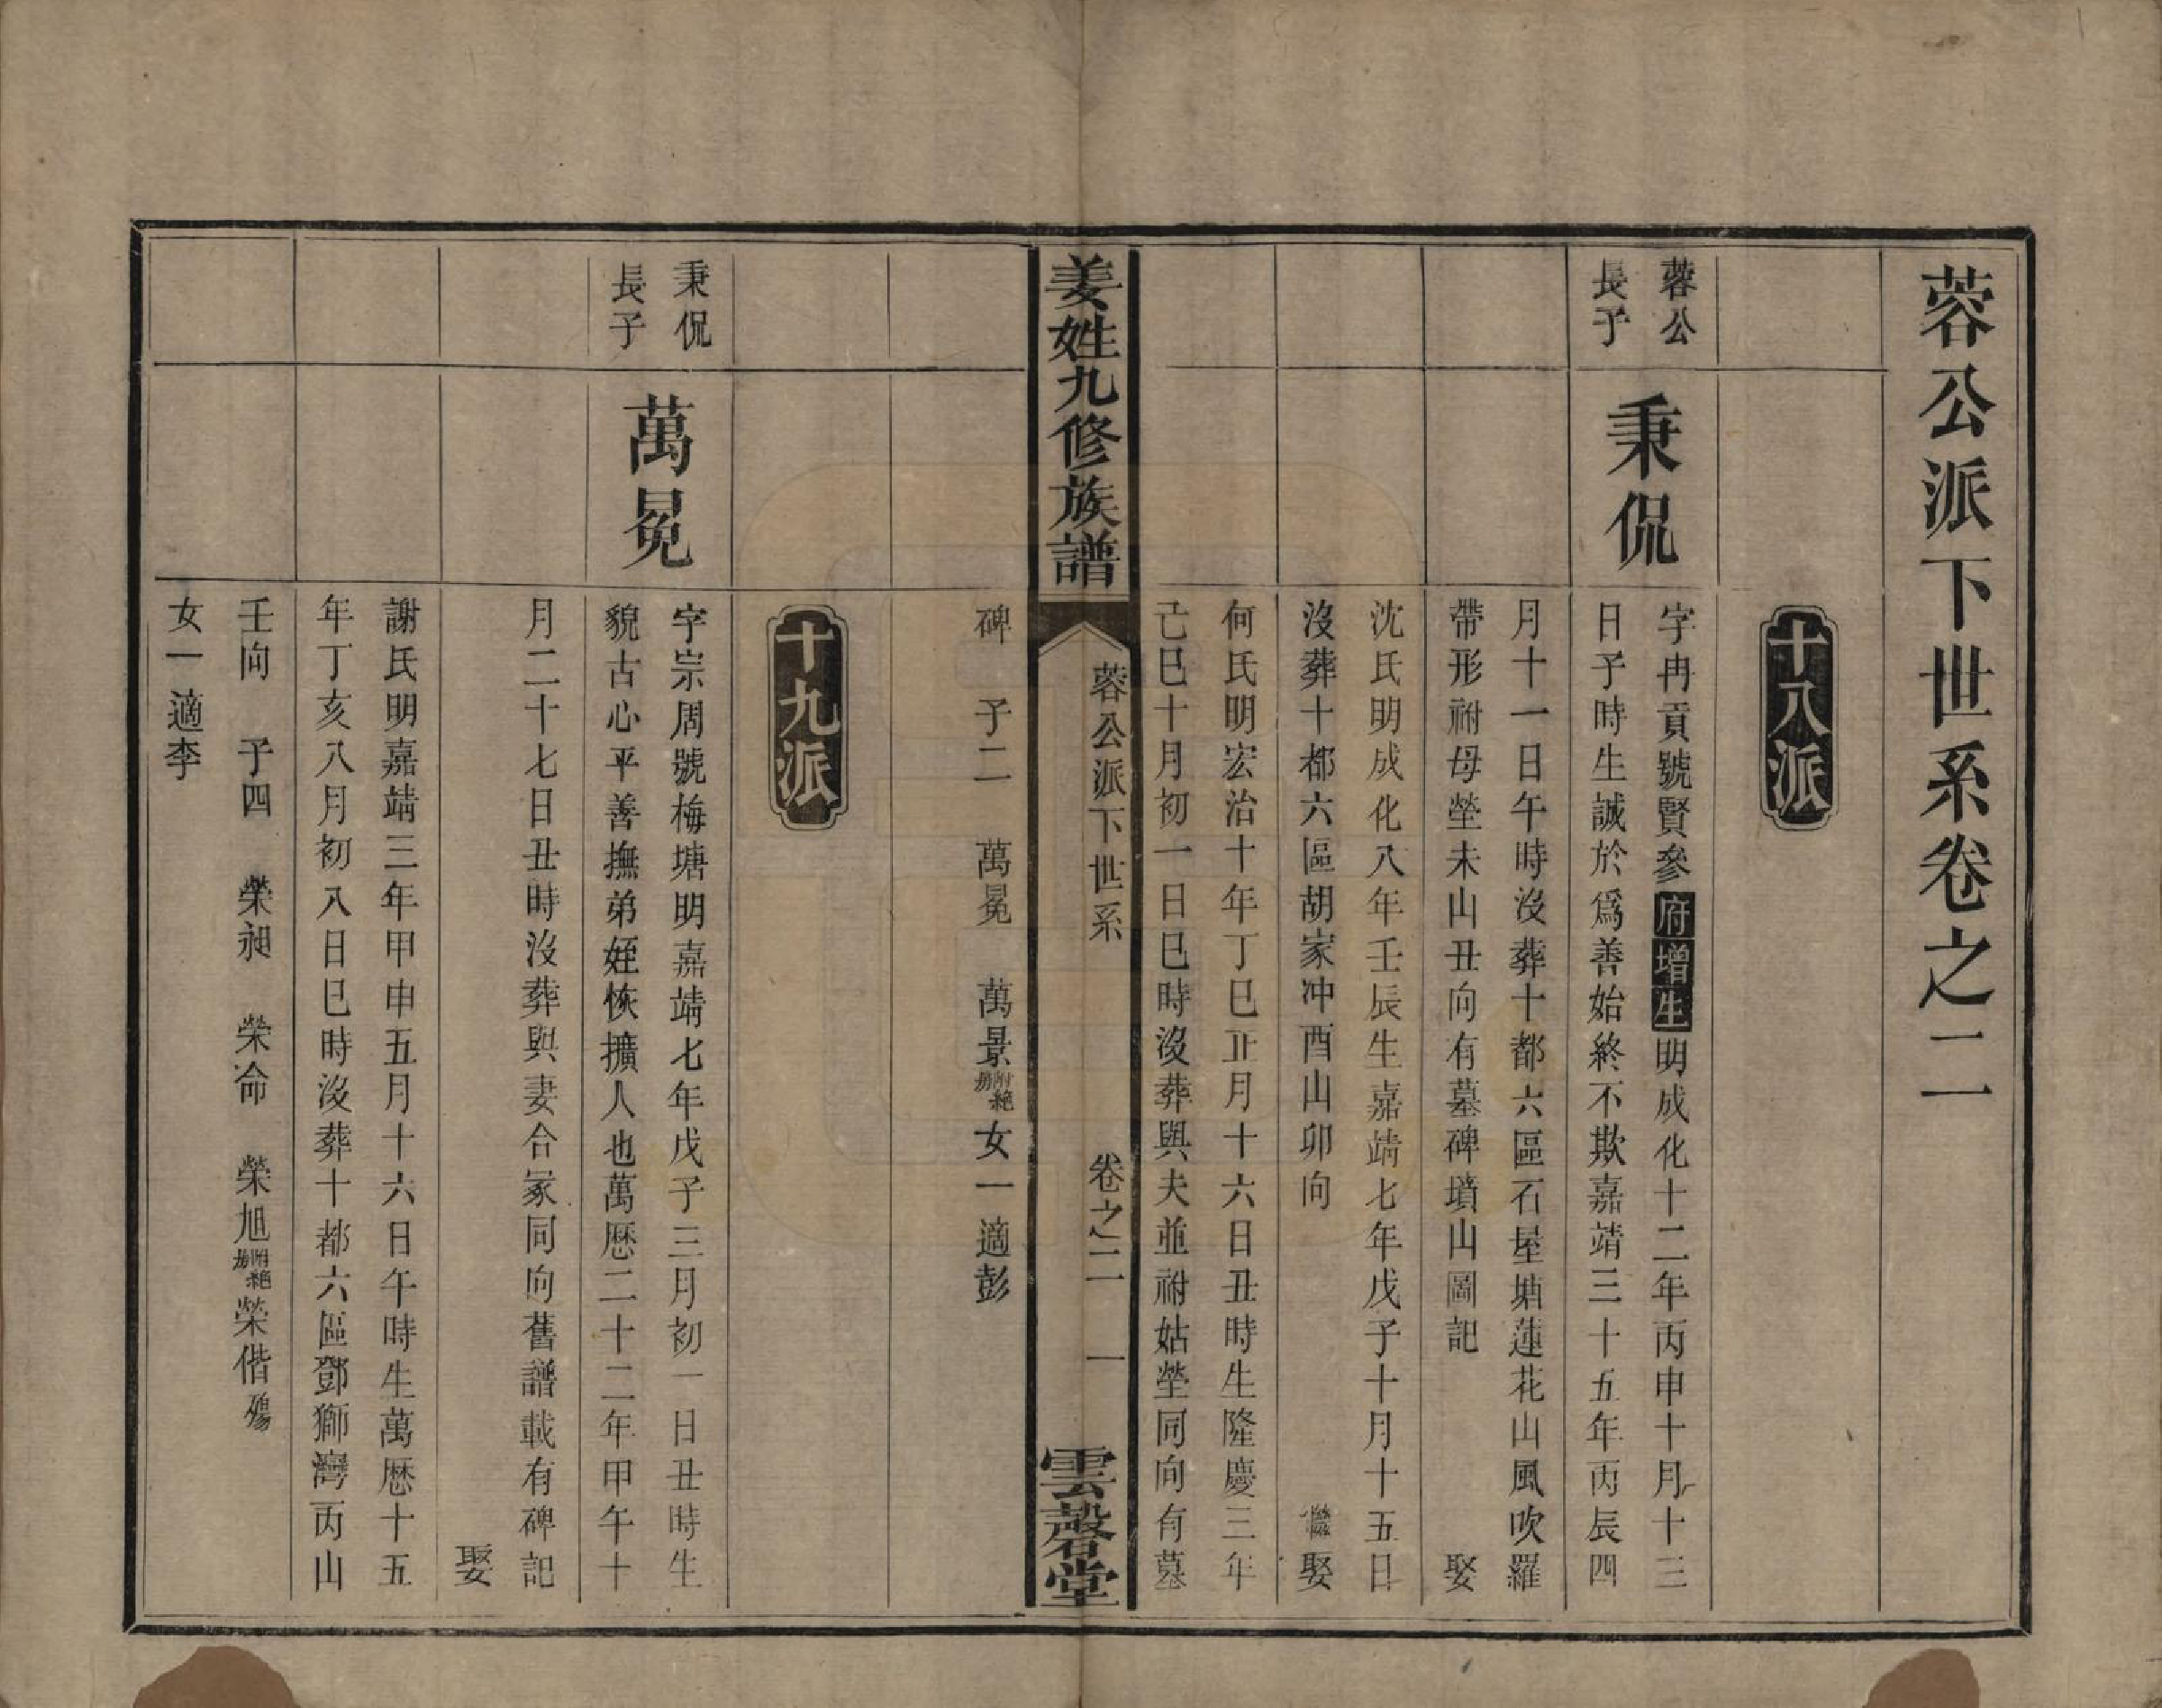 蓉公派下世系卷之二
十八派
蓉公
長子
秉侃
字冉貢號賢參府增生明成化十二年丙申十月十三
日子時生誠於爲善始終不欺嘉靖三十五年丙辰四
月十一日午時沒葬十都六區石屋塘蓮花山風吹羅
帶形祔母塋未山丑向有墓碑墳山圖記 娶
沈氏明成化八年壬辰生嘉靖七年戊子十月十五日
沒葬十都六區胡家冲酉山卯向 繼娶
何氏明宏治十年丁巳正月十六日丑時生隆慶三年
己巳十月初一日巳時沒葬與夫並祔姑塋同向有墓
姜姓九修族譜
蓉公派下世系 卷之二 一
雲磬堂
碑 子二 萬冕 萬景附絕房女一適彭
十九派
秉侃
長子
萬冕
字宗周號梅塘明嘉靖七年戊子三月初一日丑時生
貌古心平善撫弟姪恢擴人也萬歷二十二年甲午十
月二十七日丑時沒葬與妻合冢同向舊譜載有碑記
娶
謝氏明嘉靖三年甲申五月十六日午時生萬歷十五
年丁亥八月初八日巳時沒葬十都六區鄧獅灣丙山
壬向 子四 榮昶 榮侖 榮旭附絕房榮偕殤
女一適李